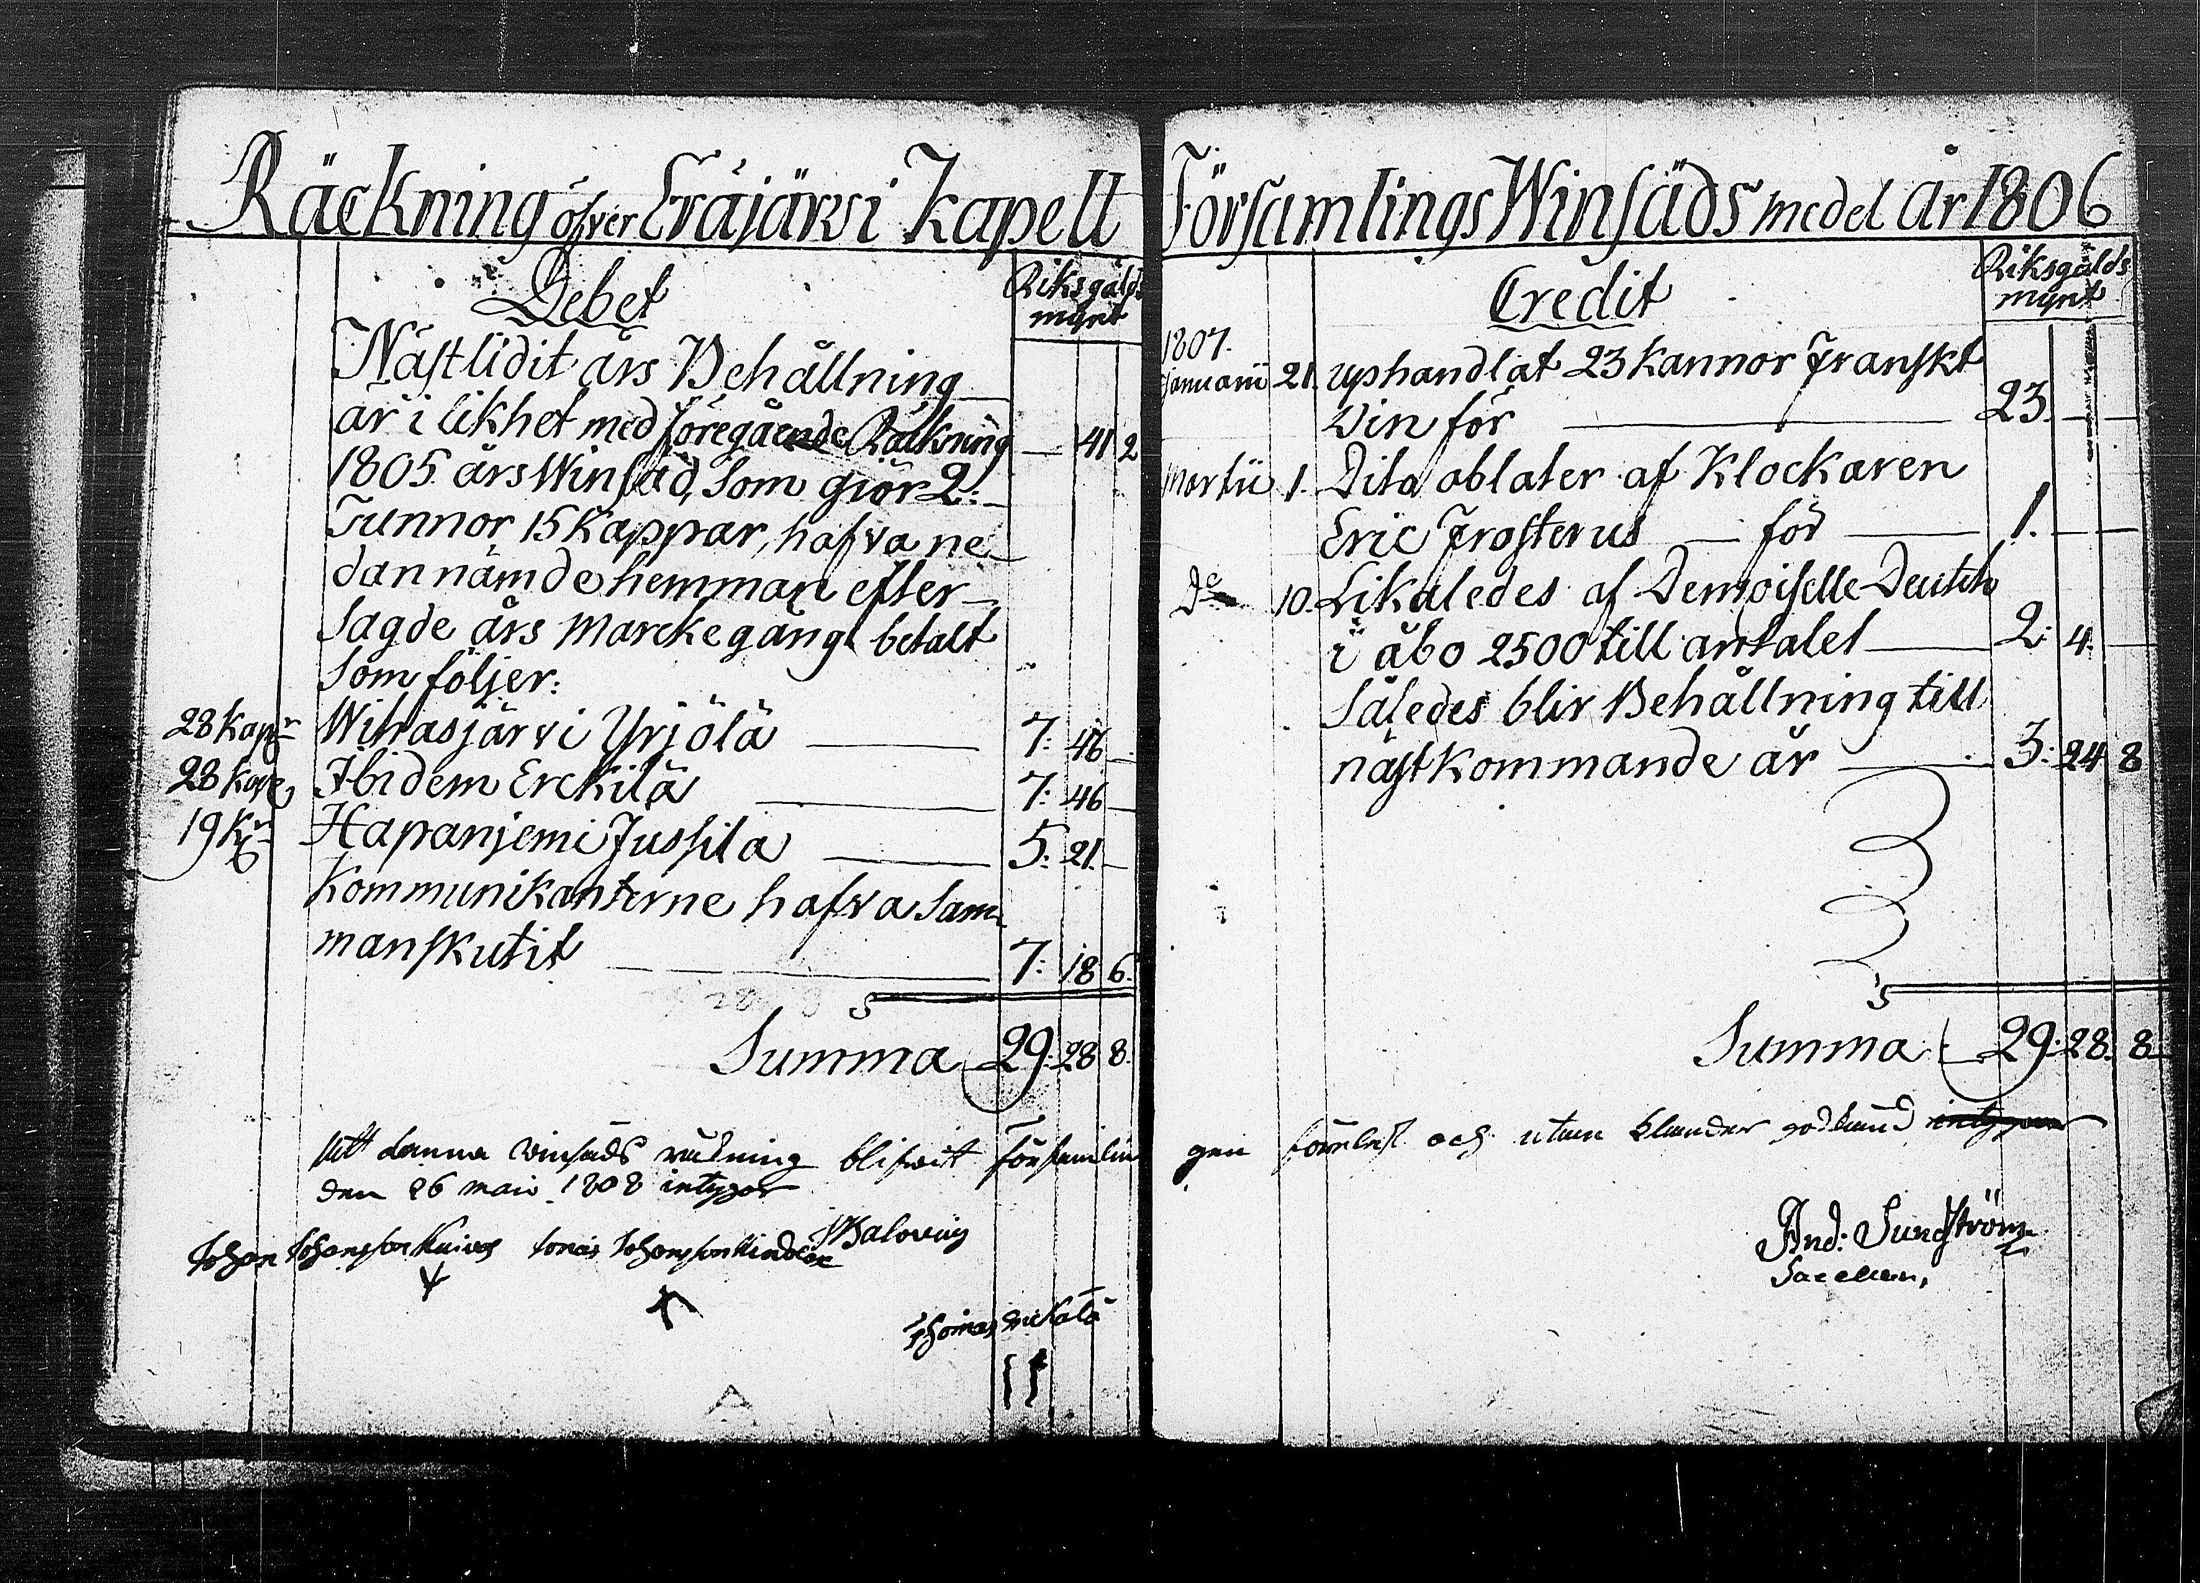 Räckning öfver Eräjärvi Kapell Församlings Winsäds medel år 1806
Debet Riksgälds
mynt
Nästlidit års Behållning
är i likhet med föregående Räkning — 41 2
1805 års Winsäd, Som giör 2:
Tunnor 15 Kappar, hafva ne-
dannämde hemman efter
Sagde års Marckegång betalt
Som följer:
28 kapr Wihasjärvi Yrjölä — 7: 46 —
28 kapr Ibidem Erckilä — 7: 46 —
19 Kr Hapanjemi Jussila — 5: 21. —
Kommunikanterne hafva Sam-
manskutit — 7: 18 6.
Summa 29: 28 8.
Credit Riksgälds
mynt
1807.
Januarii 21. uphandlat 23 Kannor Franskt
Win för — 23. — —
Martii 1. Dito oblater af Klockaren
Eric Frosterus — för — 1. — —
Do 10. Likaledes af Demoiselle Deutch
i åbo 2500 till antalet — 2: 4. —
Således blir Behållning till
nästkommande år — 3: 24 8
Summa 29: 28. 8
Att denna winsäds räkning blifvit församlin gen föreläst och utan klander godkänd
den 26 maii 1808 intygar
And: Sundström
Sacellan,
Johan Johansson Jonas Johansson
Thomas